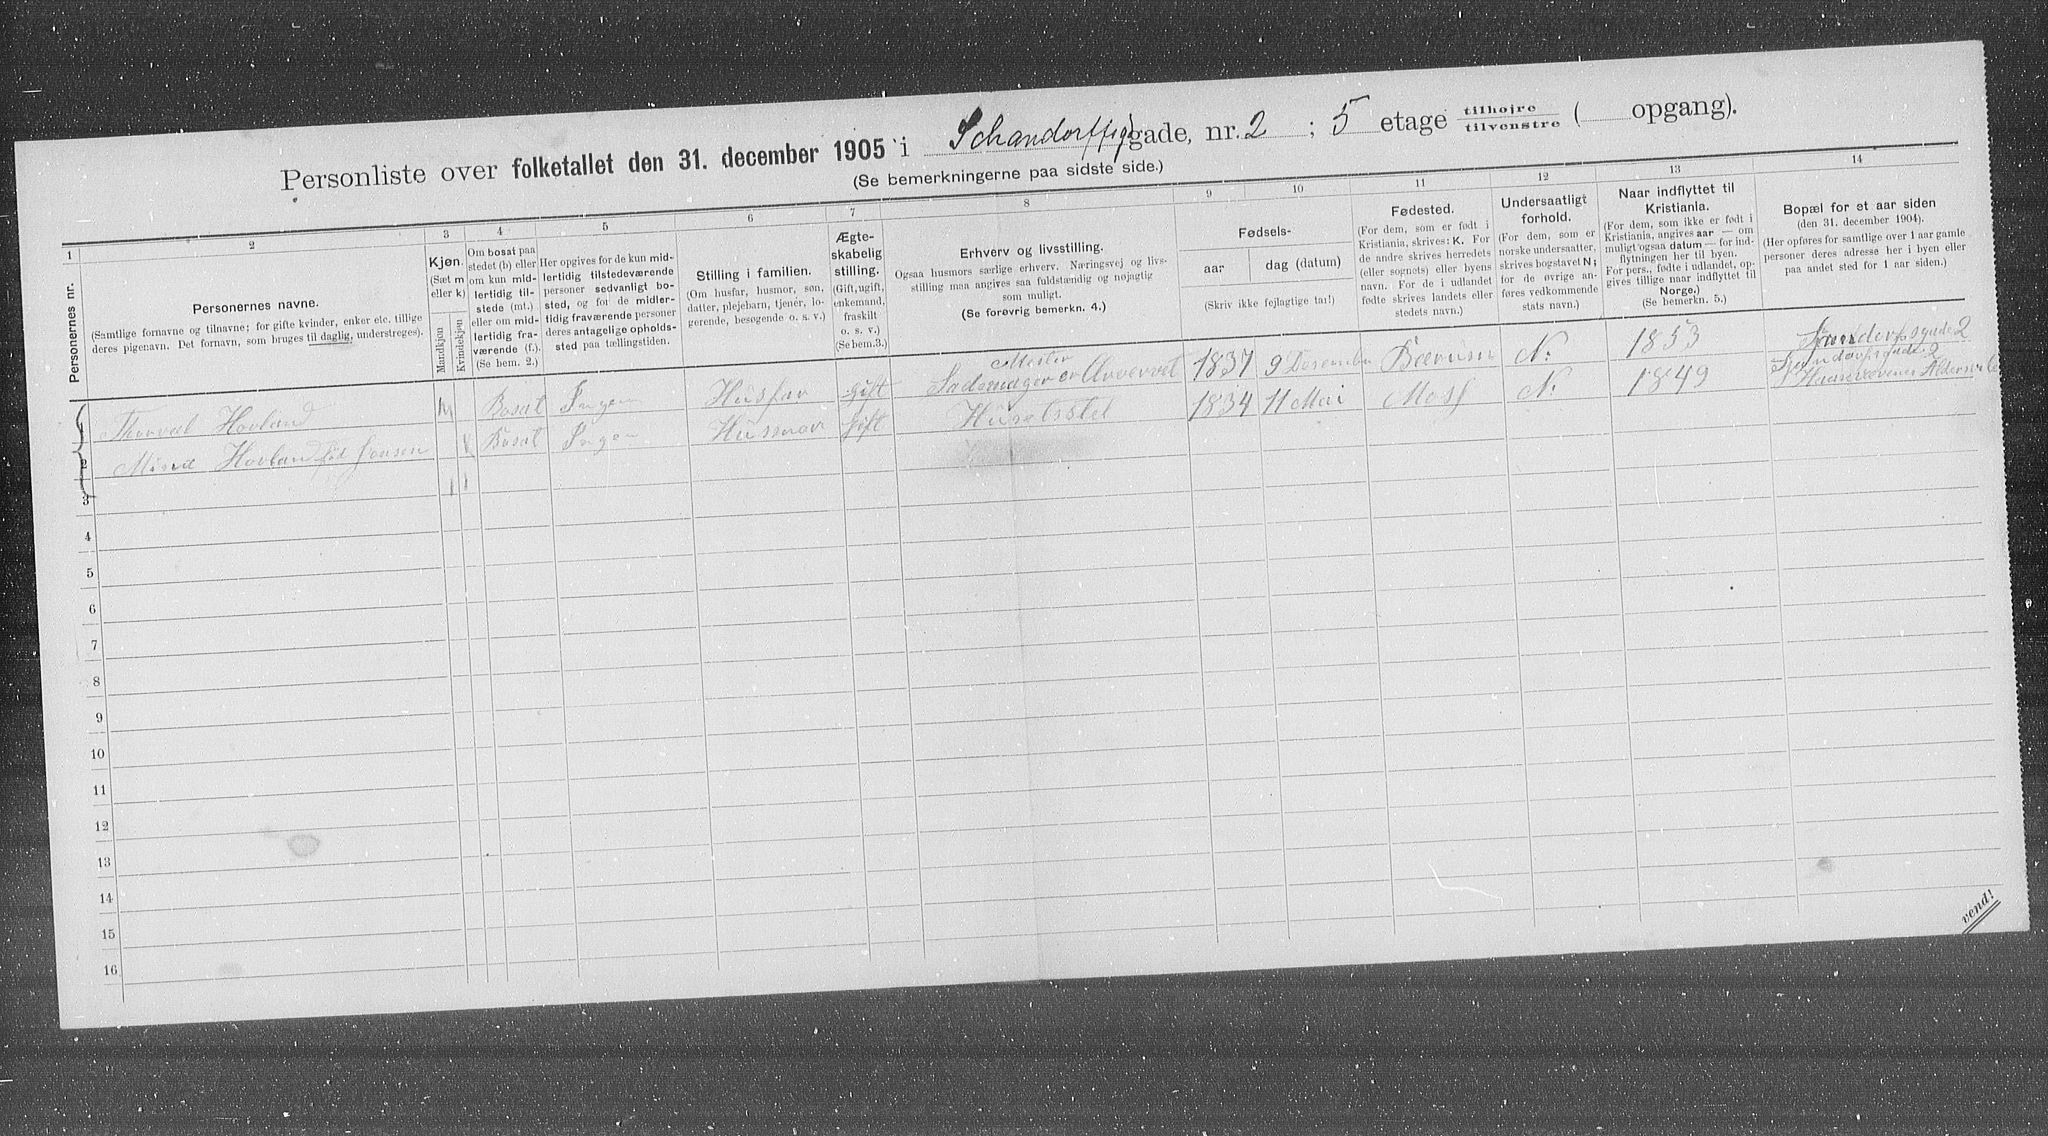 Personliste over folketallet den 31. december 1905 i Schandorffs gade, nr. 2 ; 5 etage tilhøire / tilvenstre ( opgang).
(Se bemerkningerne paa sidste side.)
1 2 3 4 5 6 7 8 9 10 11 12 13 14
Personernes nr.
Personernes navne.
(Samtlige fornavne og tilnavne; for gifte kvinder, enker etc. tillige
deres pigenavn. Det fornavn, som bruges til daglig, understreges).
Kjøn.
(Sæt m
eller k)
Mandkjøn
Kvindekjøn
Om bosat paa
stedet (b) eller
om kun mid-
lertidig til-
stede (mt.)
eller om mid-
lertidig fra-
værende (f.).
(Se bem. 2.)
Her opgives for de kun mid-
lertidig tilstedeværende
personer sedvanligt bo-
sted, og for de midler-
tidig fraværende personer
deres antagelige opholds-
sted paa tællingstiden.
Stilling i familien.
(Om husfar, husmor, søn,
datter, plejebarn, tjener, lo-
gerende, besøgende o. s. v.)
Ægte-
skabelig
stilling.
(Gift, ugift,
enkemand,
fraskilt
o. s. v.)
(Se bem.3.)
Erhverv og livsstilling.
Ogsaa husmors særlige erhverv. Næringsvej og livs-
stilling maa angives saa fuldstændig og nøjagtig
som muligt.
(Se forøvrig bemerkn. 4.)
Fødsels-
aar
dag (datum)
(Skriv ikke fejlagtige tal!)
Fødested.
(For dem, som er født i
Kristiania, skrives: K. For
de andre skrives herredets
(eller sognets) eller byens
navn. For de i udlandet
fødte skrives landets eller
stedets navn.)
Undersaatligt
forhold.
(For dem, som er
norske undersaatter,
skrives bogstavet N;
for de øvrige an-
føres vedkommende
stats navn.)
Naar indflyttet til
Kristiania.
(For dem, som ikke er født i
Kristiania, angives aar — om
muligt ogsaa datum — for ind-
flytningen her til byen.
For pers., fødte i udlandet, op-
gives tillige naar indflyttet til
Norge.)
(Se bemerkn. 5.)
Bopæl for et aar siden
(den 31. december 1904).
(Her opføres for samtlige over 1 aar gamle
personer deres adresse her i byen eller
paa andet sted for 1 aar siden.)
Thorval Hovland m Bosat Ingen Husfar Gift Mester 1837 9 Desember Bærum N. 1853
2 Mina Hovland Jensen k Bosat Ingen Husmor Gift Huset 1834 11 Mai Moss N. 1849
3
4
5
6
7
8
9
10
11
12
13
14
15
16
vend!